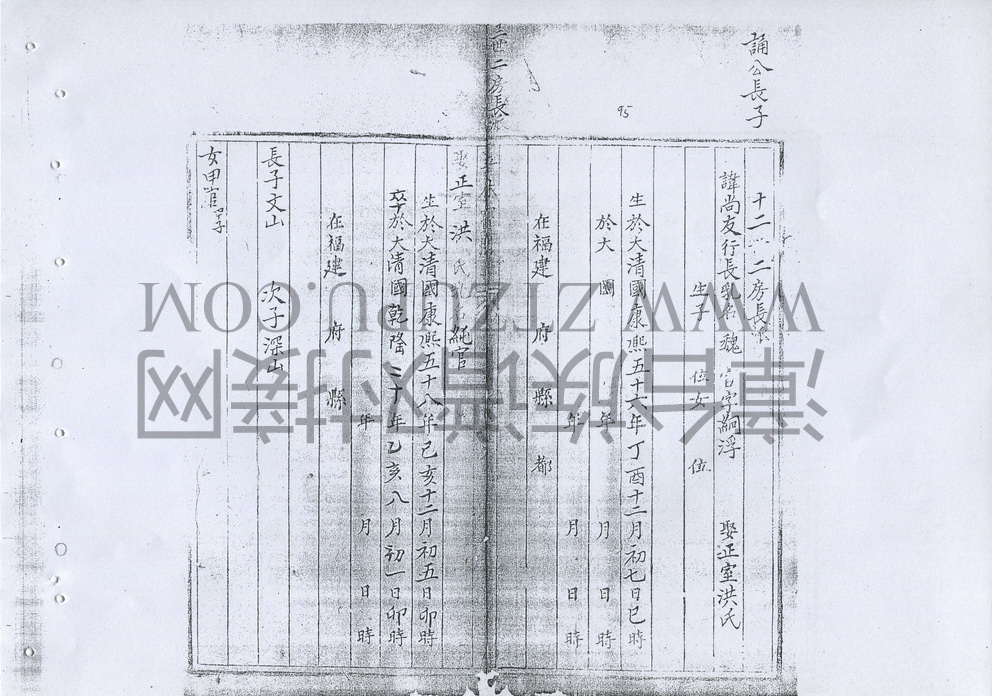 誦公長子
95
十二 二房長
諱尚友行長乳名魏 官字嗣浮 娶正室洪氏
生子 位女 位
生於大清國康熙五十六年丁酉十二月初七日巳時
於大 國 年 月 日 時
年 月 日 時
在福建 府 縣 都
二房長
娶正室洪氏 純官
生於大清國康熙五十八年己亥十二月初五日卯時
卒於大清國乾隆二十年乙亥八月初一日卯時
年 月 日 時
在福建 府 縣
長子文山 次子深山
女甲官
WWW.ZTZUPU.COM
漳台族谱对接网